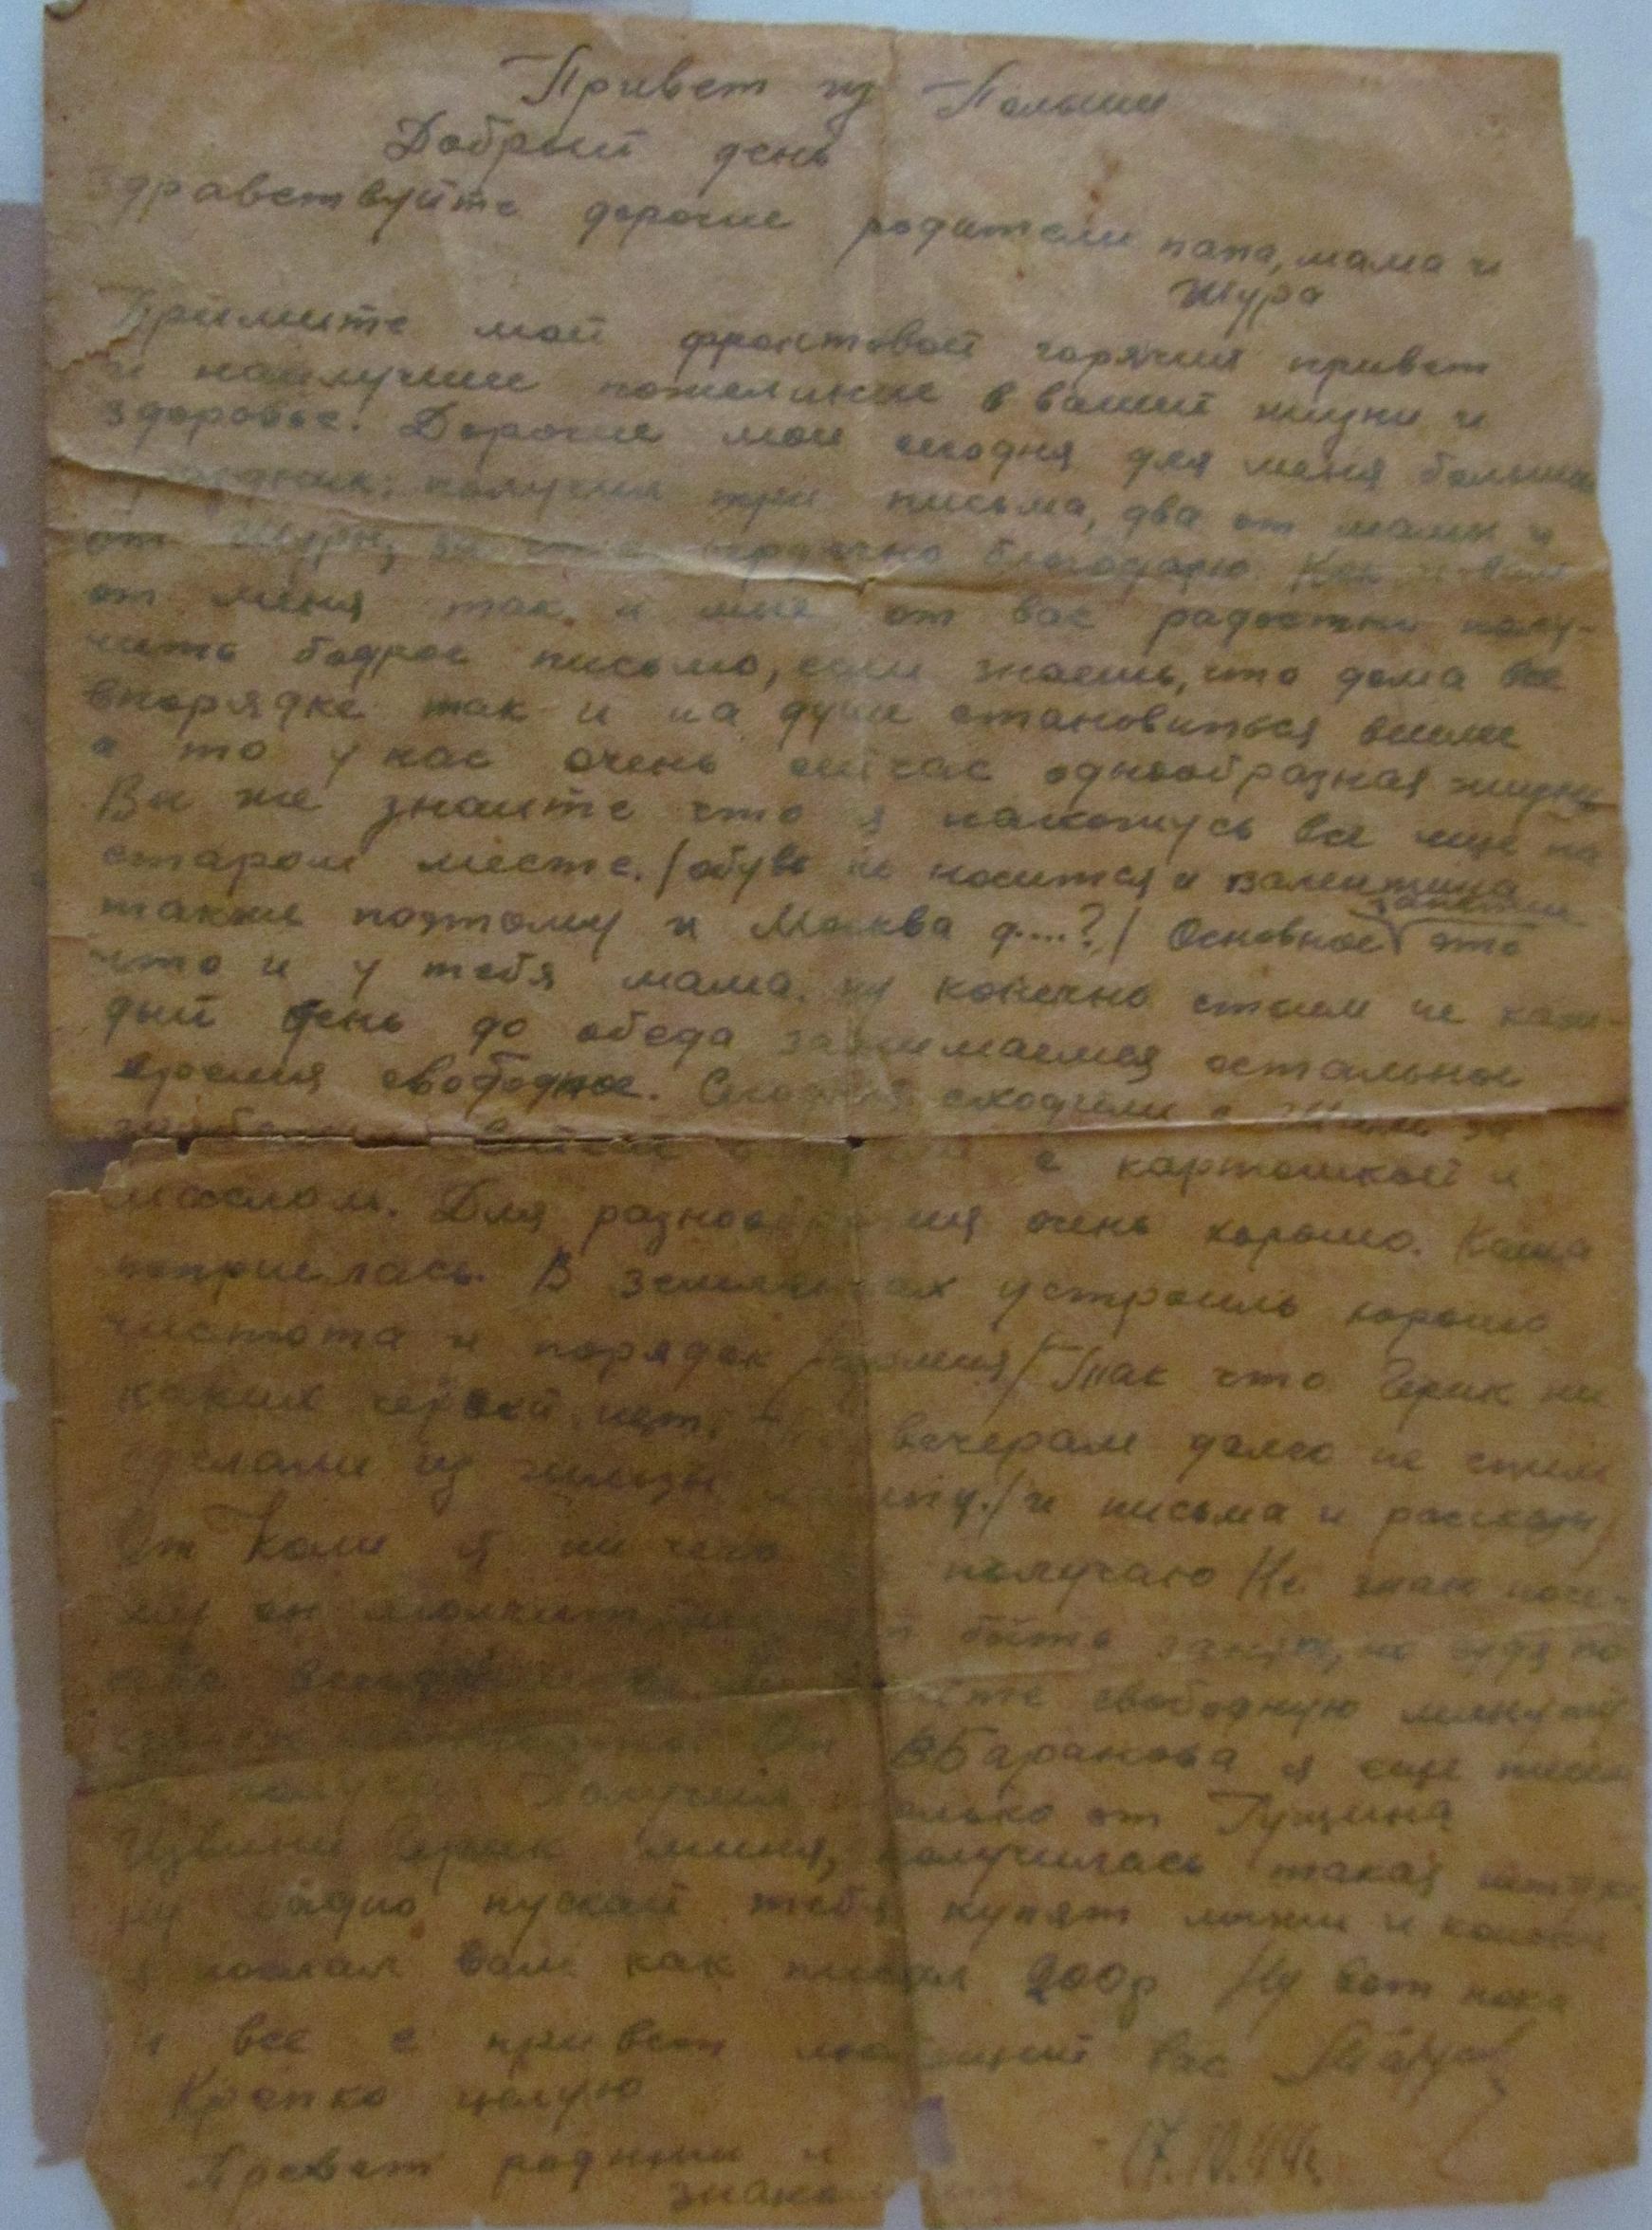 Привет из Польши
Добрый день
Здравствуйте дорогие родители папа, мама и
Шура
Примите мой фронтовой горячий привет
и наилучшие пожелание в вашей жизни и
здоровье. Дорогие мои сегодня для меня большой
получил три письма, два от мамы и
от Шуры, сердечно благодарю. Как и вам
от меня так и мне от вас радостно полу-
чить бодрое письмо, если знаешь, что дома все
впорядке так и на душе становиться веселее
а то у нас очень сейчас однообразная жизнь
Вы же знаите что я нахожусь все еще на
старом месте. (обувь не носится и Валентина
также поэтому и Москва д....?) Основное занятие это
что и у тебя мама, ну конечно стоим не каж-
дый день до обеда занимаемся остальное
время свободное. Сегодня сходили с за
с картошкой и
маслом. Для разнообразия очень хорошо. Каша
поприелась. В землянках устроили хорошо
чистота и порядок Так что Герик ни
каких червей нет, вечерам долго не спим
сделали из гильзы и письма и рассказы
От Коли я ни чего не получаю Не знаю поче-
му он молчит, быть занят, но судя по
себе свободную минуту
От ВБаранова я еще писем
не получал Получил только от Гущина
Извини Герик меня, получилась такая штука,
ну ладно пускай тебе купят лыжи и коньки
я послал вам как писал 900р Ну вот пока
и все с привет любящий вас
Крепко целую
Превет родным и
17.10.44г.